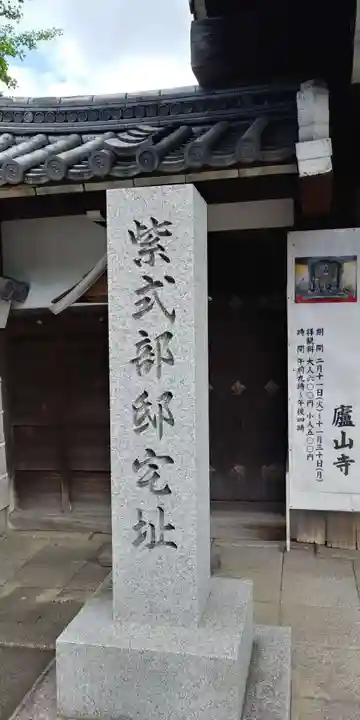 紫式部邸宅址
廬山寺
期間 二月十一日(火)～十一月三十日(月)
拝観料 大人六〇〇円 小人五〇〇円
時間 午前九時～午後四時